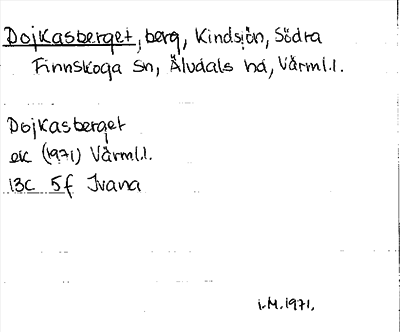 Dojkasberget, berg, Kindsjön, Södra
Finnskoga sn, Älvdals hd, Värml.l.
Dojkasberget
ek (1971) Värml.l.
13c 5f Ivana
i.M.1971.